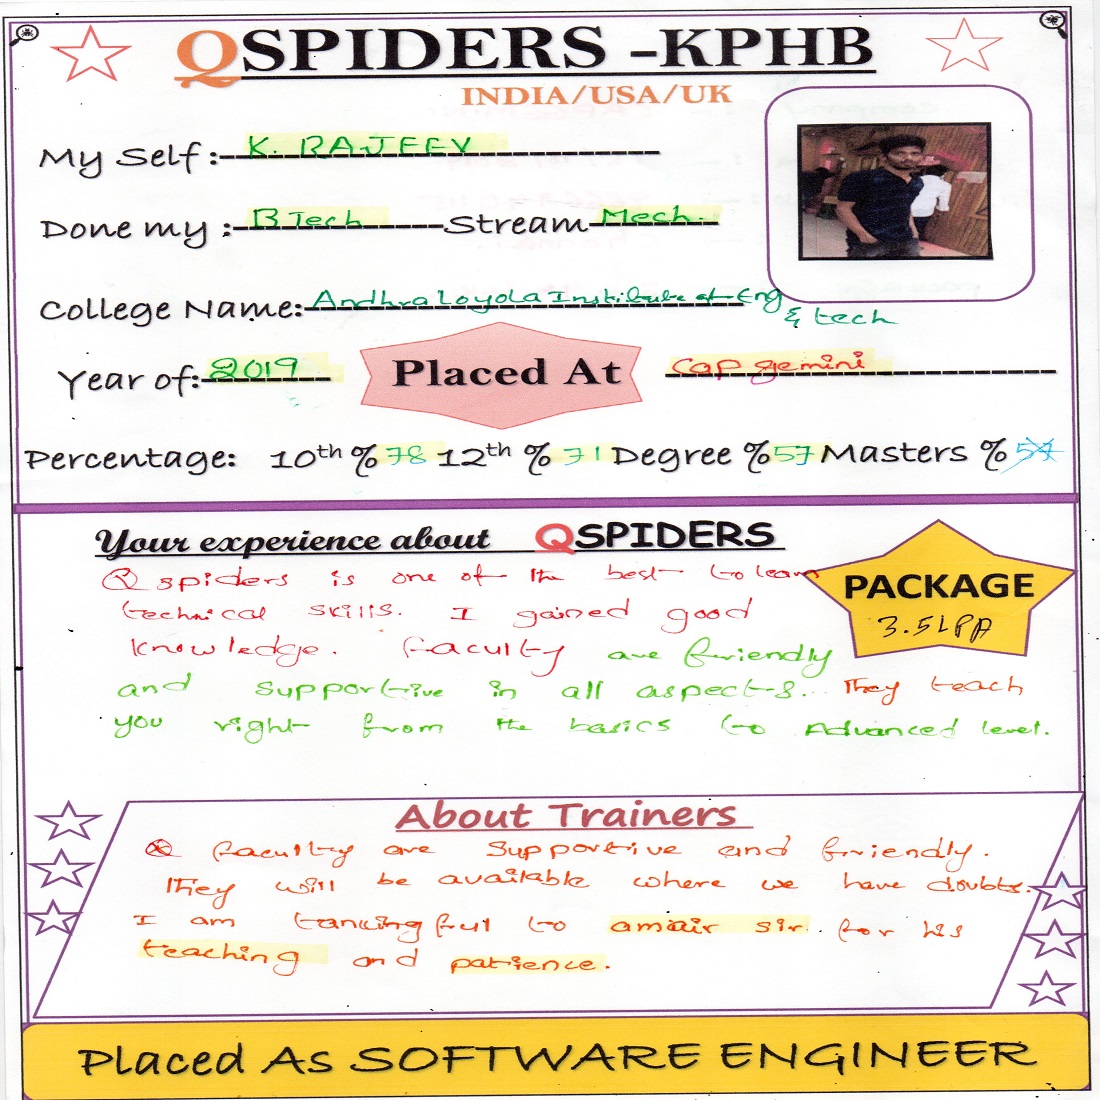 QSPIDERS -KPHB
INDIA/USA/UK
My Self :- K. RAJEEV
Done my :- B Tech Stream Mech.
College Name:- Andhra Loyola Institute of Eng
& tech
Year of:- 2019 Placed At Cap gemini
Percentage: 10th % 78 12th % 71 Degree % 57 Masters %
Your experience about QSPIDERS
Q spiders is one of the best to learn
technical skills. I gained good
knowledge. faculty are friendly
and supportive in all aspects.. They teach
you right from the basics to Advanced level.
PACKAGE
3.5LPA
About Trainers
faculty are supportive and friendly.
They will be available where we have doubts.
I am ful to amair sir. for his
teaching and patience.
Placed As SOFTWARE ENGINEER